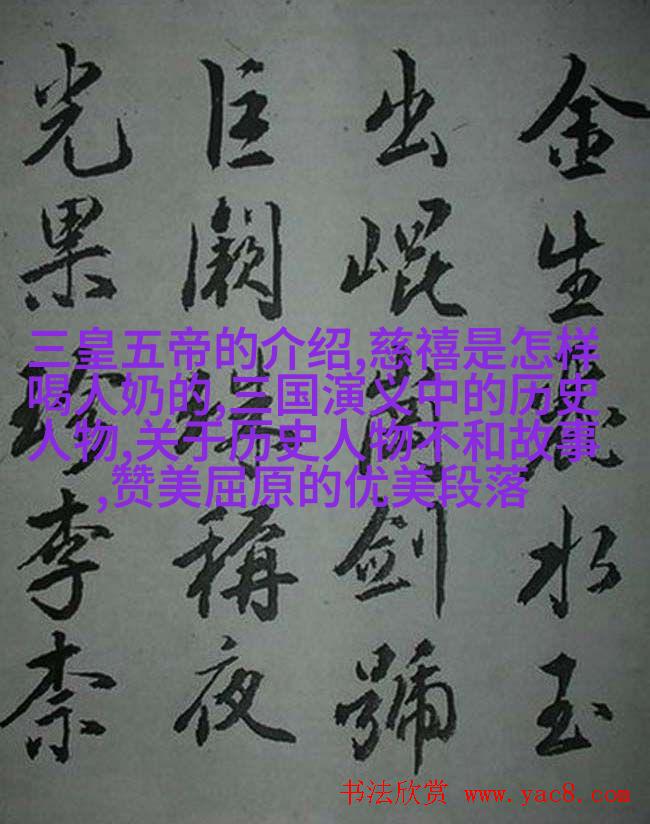 金生麗水玉
出崐岡劍號
巨闕珠稱夜
光果珍李柰
三皇五帝的介绍,慈禧是怎样
喝人奶的,三国演义中的历史
人物,关于历史人物不和故事
,赞美屈原的优美段落
书法欣赏 www.yac8.com